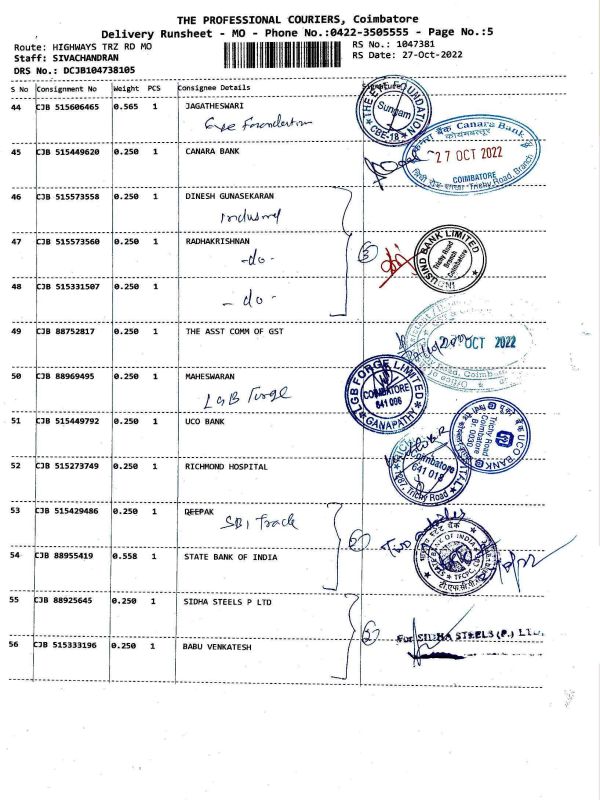 THE PROFESSIONAL COURIERS, Coimbatore
Delivery Runsheet - MO - Phone No.:0422-3505555 - Page No.:5
Route: HIGHWAYS TRZ RD MO
RS No.: 1047381
Staff: SIVACHANDRAN
RS Date: 27-Oct-2022
DRS No.: DCJB104738105
S No Consignment No Weight PCS Consignee Details Signature
44 CJB 515606465 0.565 1 JAGATHESWARI
Eye Foundation
THE EYE FOUNDATION
Sungam
CBE-18
45 CJB 515449620 0.250 1 CANARA BANK
केनरा बैंक Canara Bank
कोयम्बत्तूर
27 OCT 2022
COIMBATORE
Trichy Road, Branch
46 CJB 515573558 0.250 1 DINESH GUNASEKARAN
Indusind
47 CJB 515573560 0.250 1 RADHAKRISHNAN
-do-
3
INDUSIND BANK LIMITED
Trichy Road
Branch
Coimbatore
48 CJB 515331507 0.250 1
- do -
49 CJB 88752817 0.250 1 THE ASST COMM OF GST
OCT 2022
50 CJB 88969495 0.250 1 MAHESWARAN
LGB Forge
LGB FORGE LIMITED
COIMBATORE
641 006
GANAPATHY
51 CJB 515449792 0.250 1 UCO BANK
UCO BANK
Trichy Road
Coimbatore
Br. 0030
52 CJB 515273749 0.250 1 RICHMOND HOSPITAL
Coimbatore
641 018
1087, Trichy Road
53 CJB 515429486 0.250 1 DEEPAK
SBI Track
54 CJB 88955419 0.558 1 STATE BANK OF INDIA
2
STATE BANK OF INDIA
55 CJB 88925645 0.250 1 SIDHA STEELS P LTD
2
For SIDHA STEELS (P.) LTD.
56 CJB 515333196 0.250 1 BABU VENKATESH